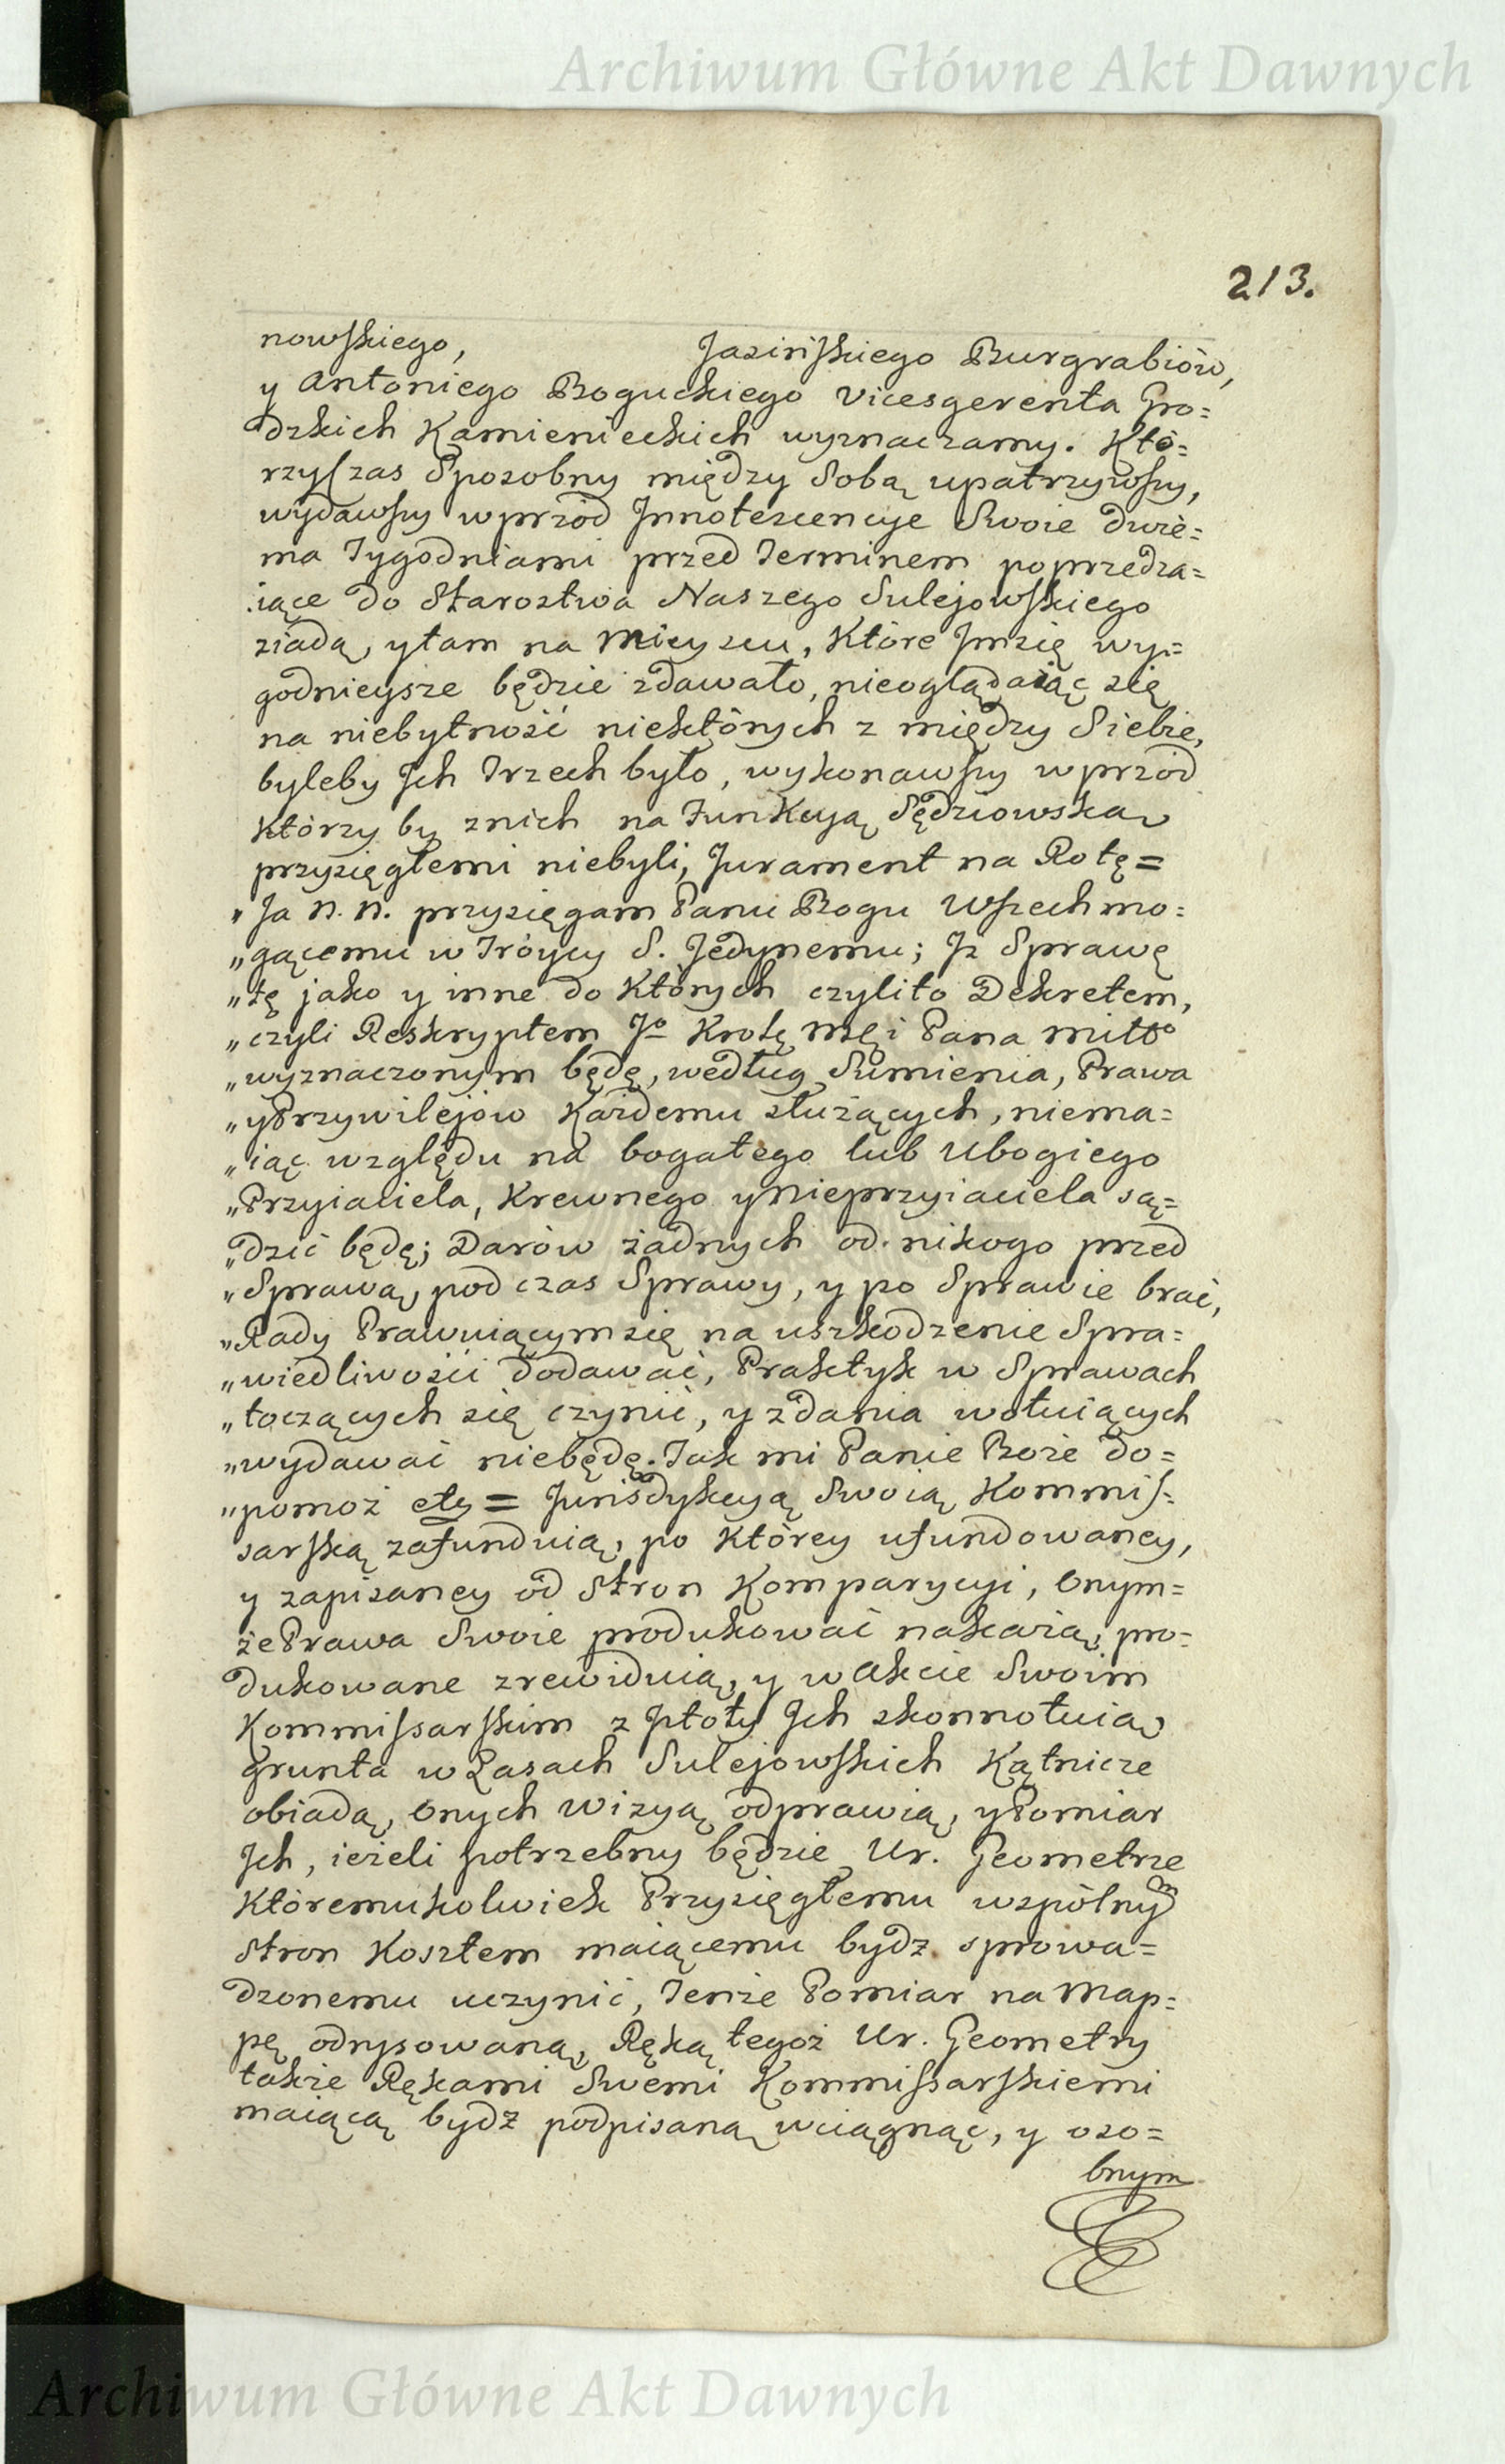 Archiwum Główne Akt Dawnych
213.
nowskiego, Jasińskiego Burgrabiów,
y Antoniego Boguckiego Vicesgerenta Gro=
dzkich Kamienieckich wyznaczamy. Któ=
rzy czas Sposobny między Sobą upatrzywszy,
wydawszy wprzód Innotescencye Swoie dwie=
ma Tygodniami przed Terminem poprzedza=
iące do Starostwa Naszego Sulejowskiego
ziadą, y tam na Mieyscu, Które Im się wy=
godnieysze będzie zdawało, nieoglądaiąc się
na niebytność niektórych z między Siebie,
byleby Ich Trzech było, wykonawszy wprzód
Którzy by z nich na Funkcyą Sędziowską
przysięgłemi niebyli, Jurament na Rotę =
"Ja N. N. przysięgam Panu Bogu Wszechmo=
"gącemu w Tróycy S. Jedynemu; Iż Sprawę
"tę jako y inne do Których czylito Dekretem,
"czyli Reskryptem Jº Krolę Mći Pana Miłº
"wyznaczonym będę, według Sumienia, Prawa
"y Przywilejów Każdemu służących, niema=
"iąc względu na bogatego lub Ubogiego
"Przyiaciela, Krewnego y Nieprzyiaciela są=
"dzić będę; Darów żadnych od nikogo przed
"Sprawą, pod czas Sprawy, y po Sprawie brać,
"Rady Prawuiącym się na uszkodzenie Spra=
"wiedliwości dodawać, Praktyk w Sprawach
"toczących się czynić, y zdania wotuiących
"wydawać niebędę. Tak mi Panie Boże do=
"pomoż etc = Jurisdykcyą Swoią Kommis=
sarską zafunduią, po Którey ufundowaney,
y zapisaney od Stron Komparycyi, Onym=
że Prawa Swoie produkować nakażą, pro=
dukowane zrewiduią, y w Akcie Swoim
Kommissarskim z Istoty Ich skonnotuią,
grunta w Lasach Sulejowskich Kątnicze
obiadą, Onych Wizyą odprawią, y Pomiar
Ich, ieżeli potrzebny będzie Ur. Geometrze
Któremukolwiek Przysięgłemu wspólnym
Stron Kosztem maiącemu bydz sprowa=
dzonemu uczynić, Tenże Pomiar na Map=
pę odrysowaną, Ręką tegoż Ur. Geometry
także Rękami Swemi Kommissarskiemi
maiącą bydź podpisaną wciągnąć, y oso=
bnym
Archiwum Główne Akt Dawnych